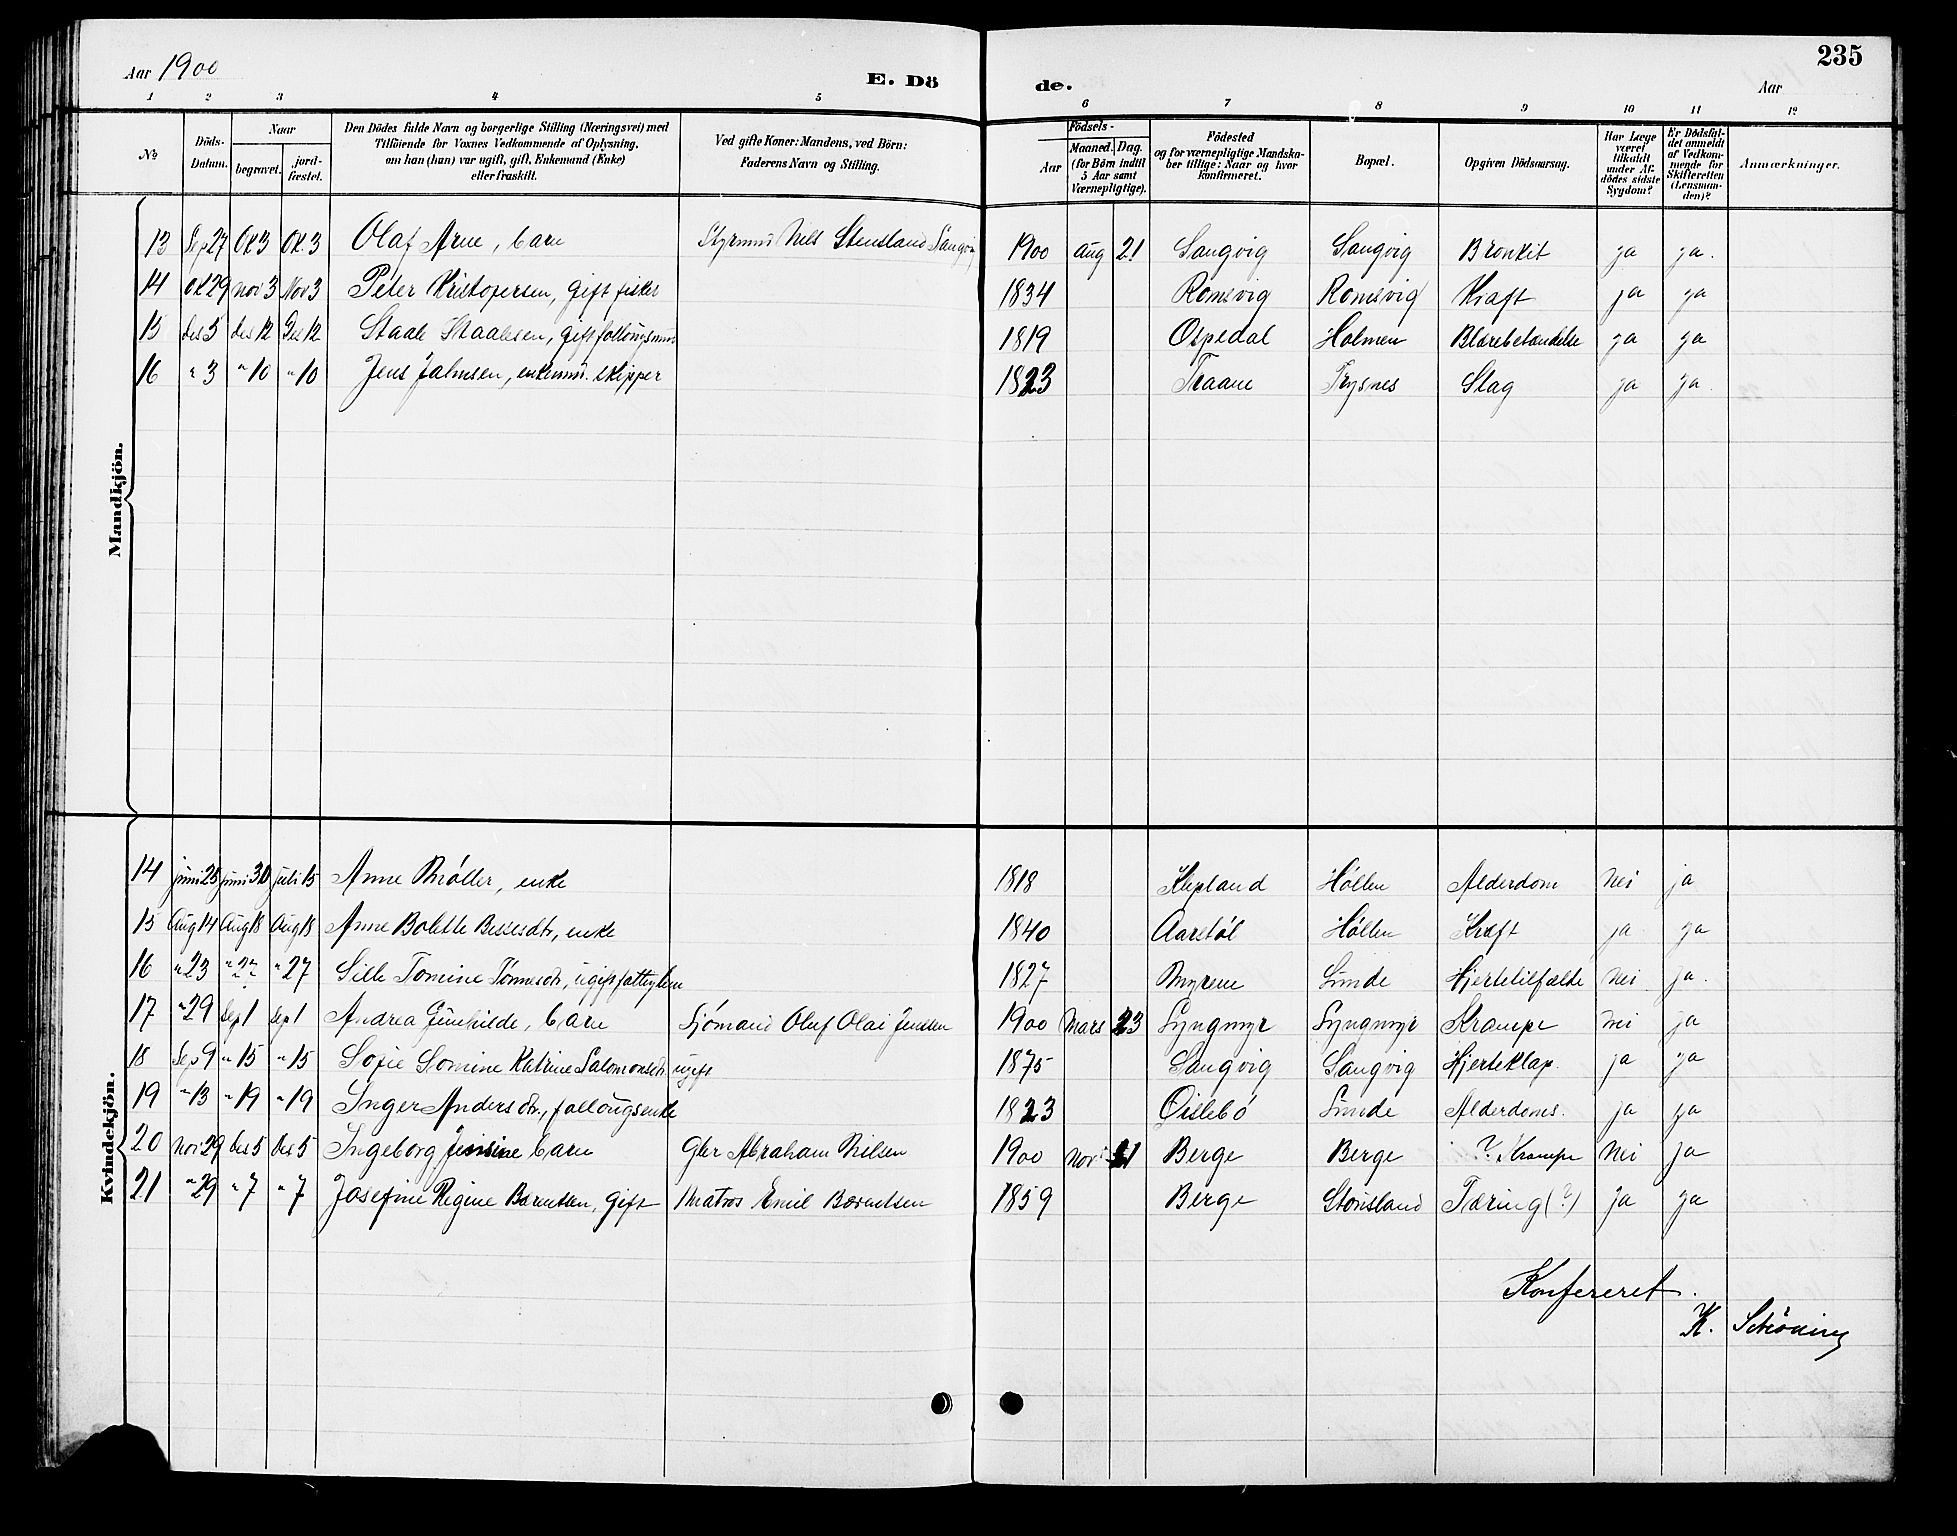 235
Aar 1900 E. Dö de. Aar
1 2 3 4 5 6 7 8 9 10 11 12
No
Döds-Datum.
Naar
begravet.
jord-fæstet.
Den Dödes fulde Navn og borgerlige Stilling (Næringsvei) med
Tilföiende for Voxnes Vedkommende af Oplysning,
om han (hun) var ugift, gift, Enkemand (Enke)
eller fraskilt.
Ved gifte Koner: Mandens, ved Börn:
Faderens Navn og Stilling.
Födsels-
Aar
Maaned. Dag.
(for Börn indtil
5 Aar samt
Værnepligtige).
Födested
og for værnepligtige Mandska-
ber tillige: Naar og hvor
konfirmeret.
Bopæl.
Opgiven Dödsaarsag.
Har Læge
været
tilkaldt
under Af-
dödes sidste
Sygdom?
Er Dödsfal-
det anmeldt
af Vedkom-
mende for
Skifteretten
(Lensman-
den)?
Anmærkninger.
Mandkjön.
13 Sep 27 Ok 3 Ok. 3 Olaf Arne, barn Styrmn Nels Stensland Sangvig 1900 aug 21 Sangvig Sangvig Bronkit ja ja.
14 Ok 29 nov 3 Nov 3 Peter Kristofersen, gift fisker 1834 Romsvig Romsvig Kræft ja ja
15 des 5 des 12 Des 12 Staale Staalesen, gift follougsmn 1819 Ospedal Holmen Blærebetændelse ja ja
16 " 3 " 10 " 10 Jens Jahnsen, enkemn. skipper 1823 Traane Trysnes Slag ja ja.
Kvindekjön.
14 juni 25 juni 30 juli 15 Anne Møller, enke 1818 Klepland Høllen Alderdom Nei ja
15 Aug 14 Aug 18 Aug 18 Anne Bolette Bessesdtr, enke 1840 Aarstøl Høllen Kræft ja ja
16 " 23 " 27 " 27 Sille Tomine Tønnesdtr, ugift fattiglem 1827 Myrene Lunde Hjertetilfælde Nei ja.
17 " 29 Sep 1 Sep 1 Andrea Gunhilde, barn Sjømand Oluf Olai Jensen 1900 Mars 23 Lyngmyr Lyngmyr Krampe nei ja
18 Sep 9 " 15 " 15 Sofie Somine Katrine Salomonsdtr. ugift 1875 Sangvig Sangvig Hjerteklap. ja ja
19 " 13 " 19 " 19 Inger Andersdtr., follougsenke 1823 Øislebø Lunde Alderdoms. ja ja
20 Nov 29 Des 5 Des 5 Ingeborg Jensine barn Gbr Abraham Nilsen 1900 Nov 21 Berge Berge ? Krampe Nei Ja
21 " 29 " 7 " 7 Josefine Regine Berentsen, gift Matros Emil Berentsen 1859 Berge Stensland Tæring (?) Ja ja
Konfereret.
K. Schöning